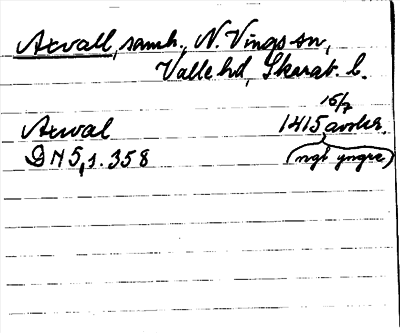 Axvall, samh., N. Vings sn,
Valle hd, Skarab. l.
15/7
Axwal 1415 avskr.
DN 5, s. 358 (ngt yngre)